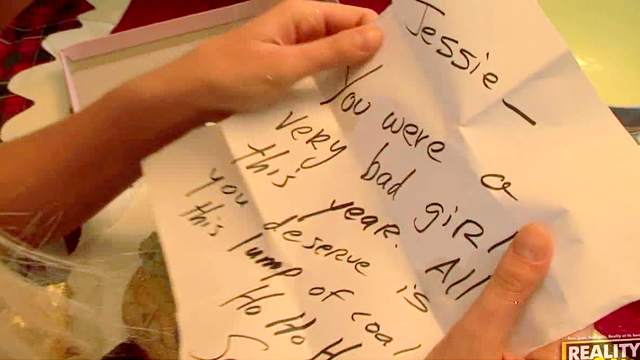 Jessie –
You were a
very bad giRl
this year. All
you deserve is
this lump of coal
Ho Ho H
REALITY